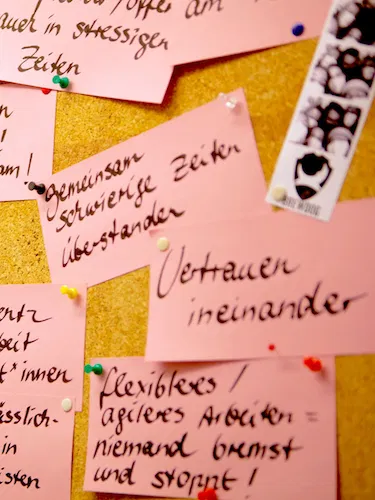 auch in stressigen
Zeiten
am!
gemeinsam
schwierige Zeiten
überstanden
Vertrauen
ineinander
t*innen
flexibleres /
agileres Arbeiten =
niemand bremst
und stoppt!
in